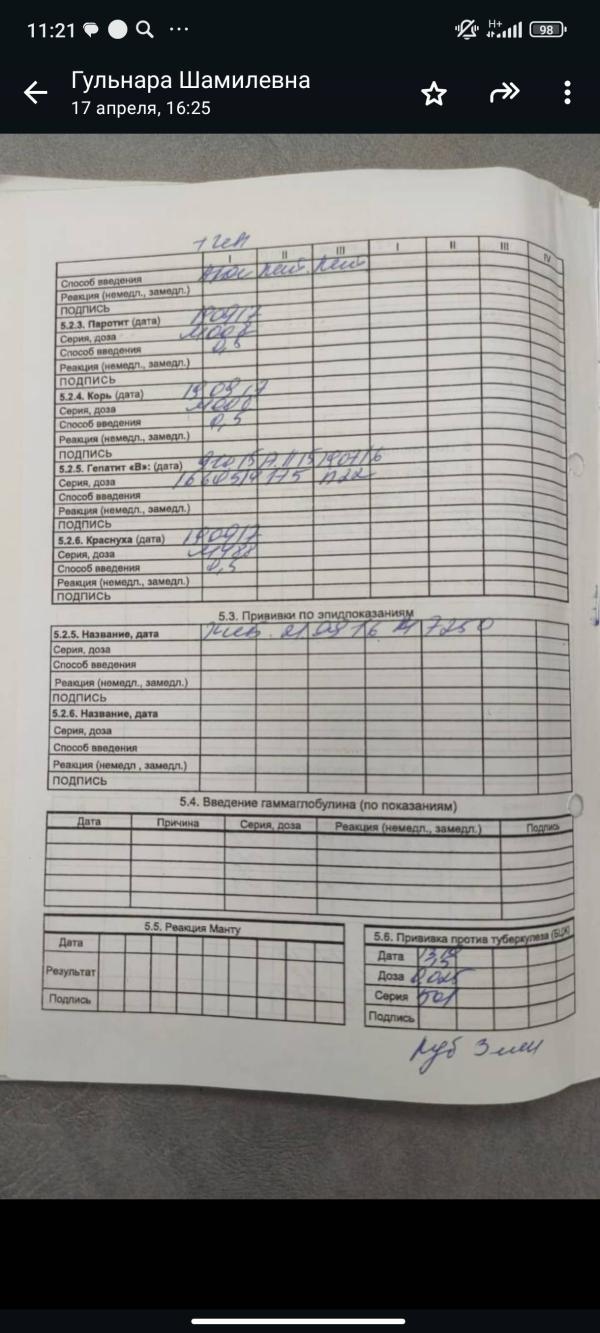 11:21
H+
98
Гульнара Шамилевна
17 апреля, 16:25
I II III I II III IV
Способ введения
Реакция (немедл., замедл.)
ПОДПИСЬ
5.2.3. Паротит (дата) 190917
Серия, доза
Способ введения 0,5
Реакция (немедл., замедл.)
ПОДПИСЬ
5.2.4. Корь (дата) 190917
Серия, доза
Способ введения 0,5
Реакция (немедл., замедл.)
ПОДПИСЬ
5.2.5. Гепатит «В»: (дата)
Серия, доза
Способ введения
Реакция (немедл., замедл.)
ПОДПИСЬ
5.2.6. Краснуха (дата) 190917
Серия, доза
Способ введения 0,5
Реакция (немедл., замедл.)
ПОДПИСЬ
5.3. Прививки по эпидпоказаниям
5.2.5. Название, дата
Серия, доза
Способ введения
Реакция (немедл., замедл.)
ПОДПИСЬ
5.2.6. Название, дата
Серия, доза
Способ введения
Реакция (немедл , замедл.)
ПОДПИСЬ
5.4. Введение гаммаглобулина (по показаниям)
Дата Причина Серия, доза Реакция (немедл., замедл.) Подпись
5.5. Реакция Манту
Дата
Результат
Подпись
5.6. Прививка против туберкулеза (БЦЖ)
Дата
Доза 0,025
Серия 501
Подпись
Руб 3 мм